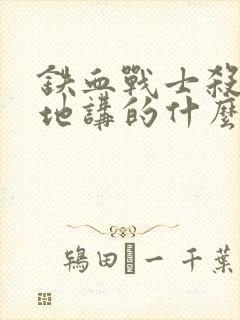 鉄血戰士殺
地講的什麼
鴇田 一 千葉